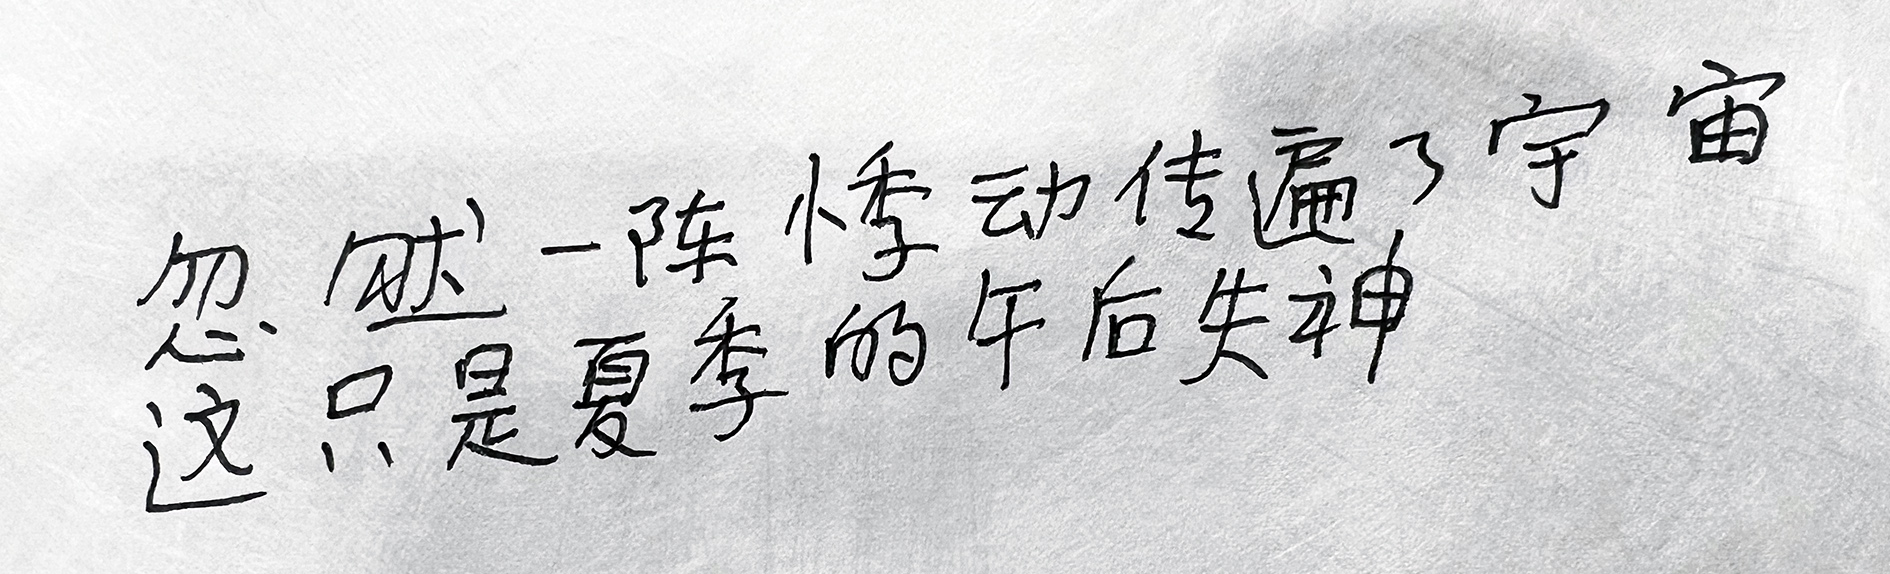 忽然一陈悸动传遍了宇宙
这只是夏季的午后失神